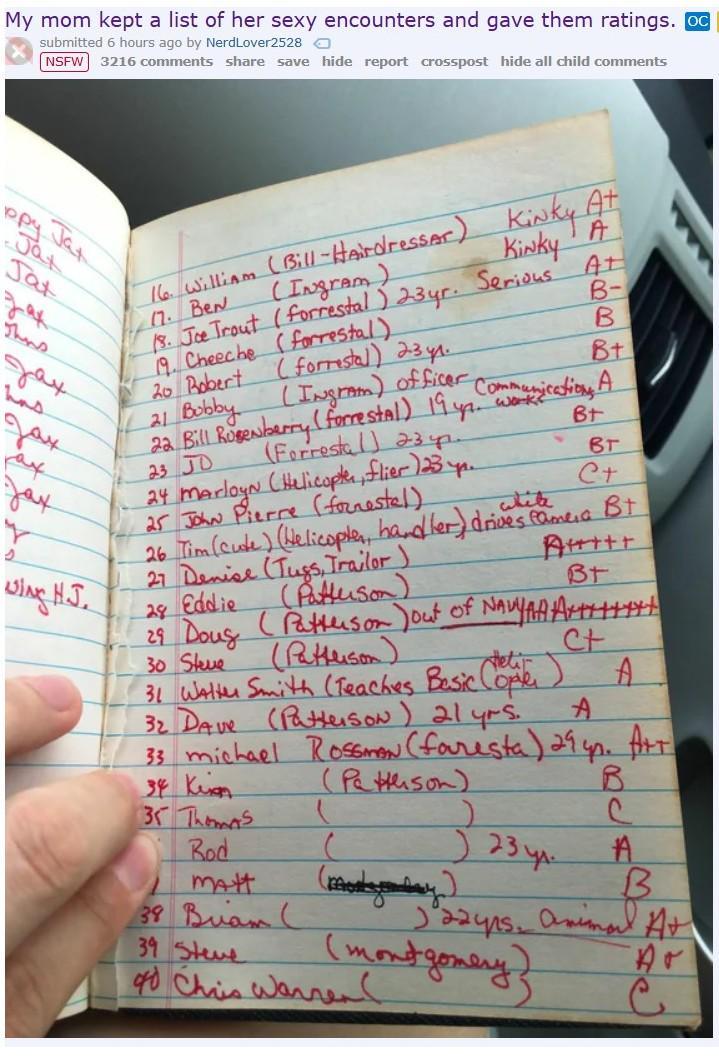 My mom kept a list of her sexy encounters and gave them ratings. OC
submitted 6 hours ago by NerdLover2528
NSFW 3216 comments share save hide report crosspost hide all child comments
ppy Jax
Jax
Jax
Jax
Jax
Jax
ax
Jax
wing H.J.
16. William (Bill-Hairdressar) Kinky A+
17. Ben (Ingram) Kinky A
18. Joe Trout (forrestal) 23yr. Serious A+
19. Cheeche (forrestal) B-
20 Robert (forrestal) 23 yr. B
21 Bobby (Ingram) officer B+
22 Bill Rosenberry (forrestal) 19 yr. works Communications A
23 JD (Forrestal) 23 yr. B+
24 Marloyn (Helicopter, flier) 23 yr. B+
25 John Pierre (forrestal) C+
26 Tim (cute) (Helicopter, handler) drives white Camero B+
27 Denise (Tugs, Trailor) A+++++
28 Eddie (Patterson) B+
29 Doug (Patterson) out of NAVY AA A++++++++
30 Steve (Patterson) C+
31 Walter Smith (Teaches Basic Helicopter) A
32 Dave (Patterson) 21 yrs. A
33 michael Rossman (foresta) 29 yr. A++
34 (Patterson) B
35 Thomas ( ) C
Rod ( ) 23 yr. A
Matt ( ) B
38 Brian ( ) 22yrs. animal A+
39 Steve (montgomery) A+
40 Chris Warren ( ) C